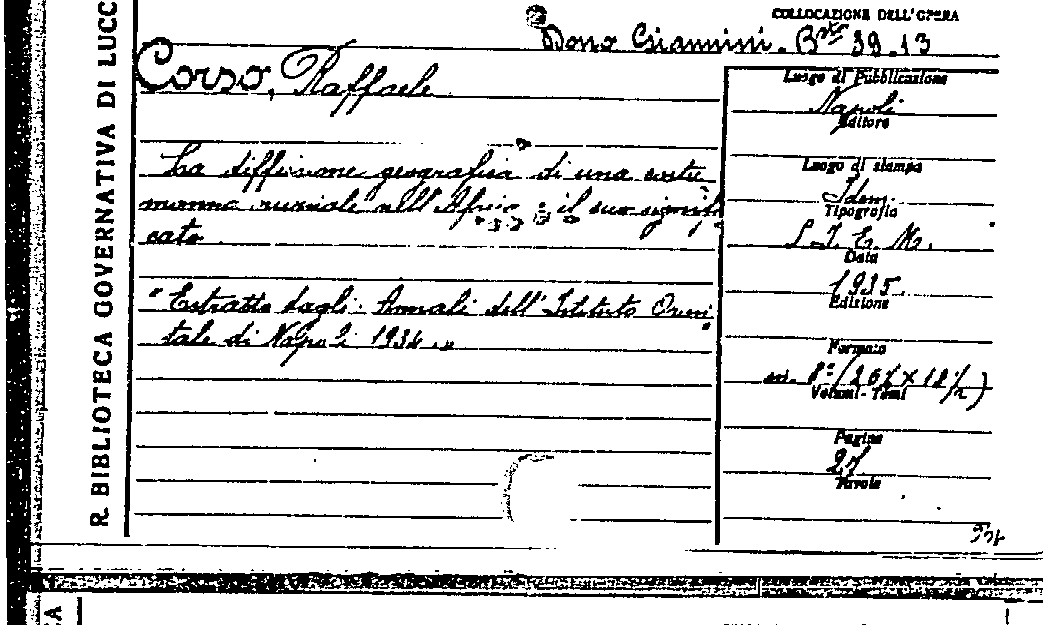 R. BIBLIOTECA GOVERNATIVA DI LUCC
COLLOCAZIONE DELL'OPERA
Dono Giannini. Bta 39.13
Corso, Raffaele
La diffusione geografica di una costu
manza nuziale nell'Africa e il suo signifi
cato
"Estratto dagli: Annali dell'Istituto Orien
tale di Napoli 1934."
Luogo di Pubblicazione
Napoli
Editore
Luogo di stampa
Idem.
Tipografia
S. I. E. M.
Data
1935.
Edizione
Formato
in. 8º (26½ × 18½)
Volumi - Tomi
Pagine
27
Tavole